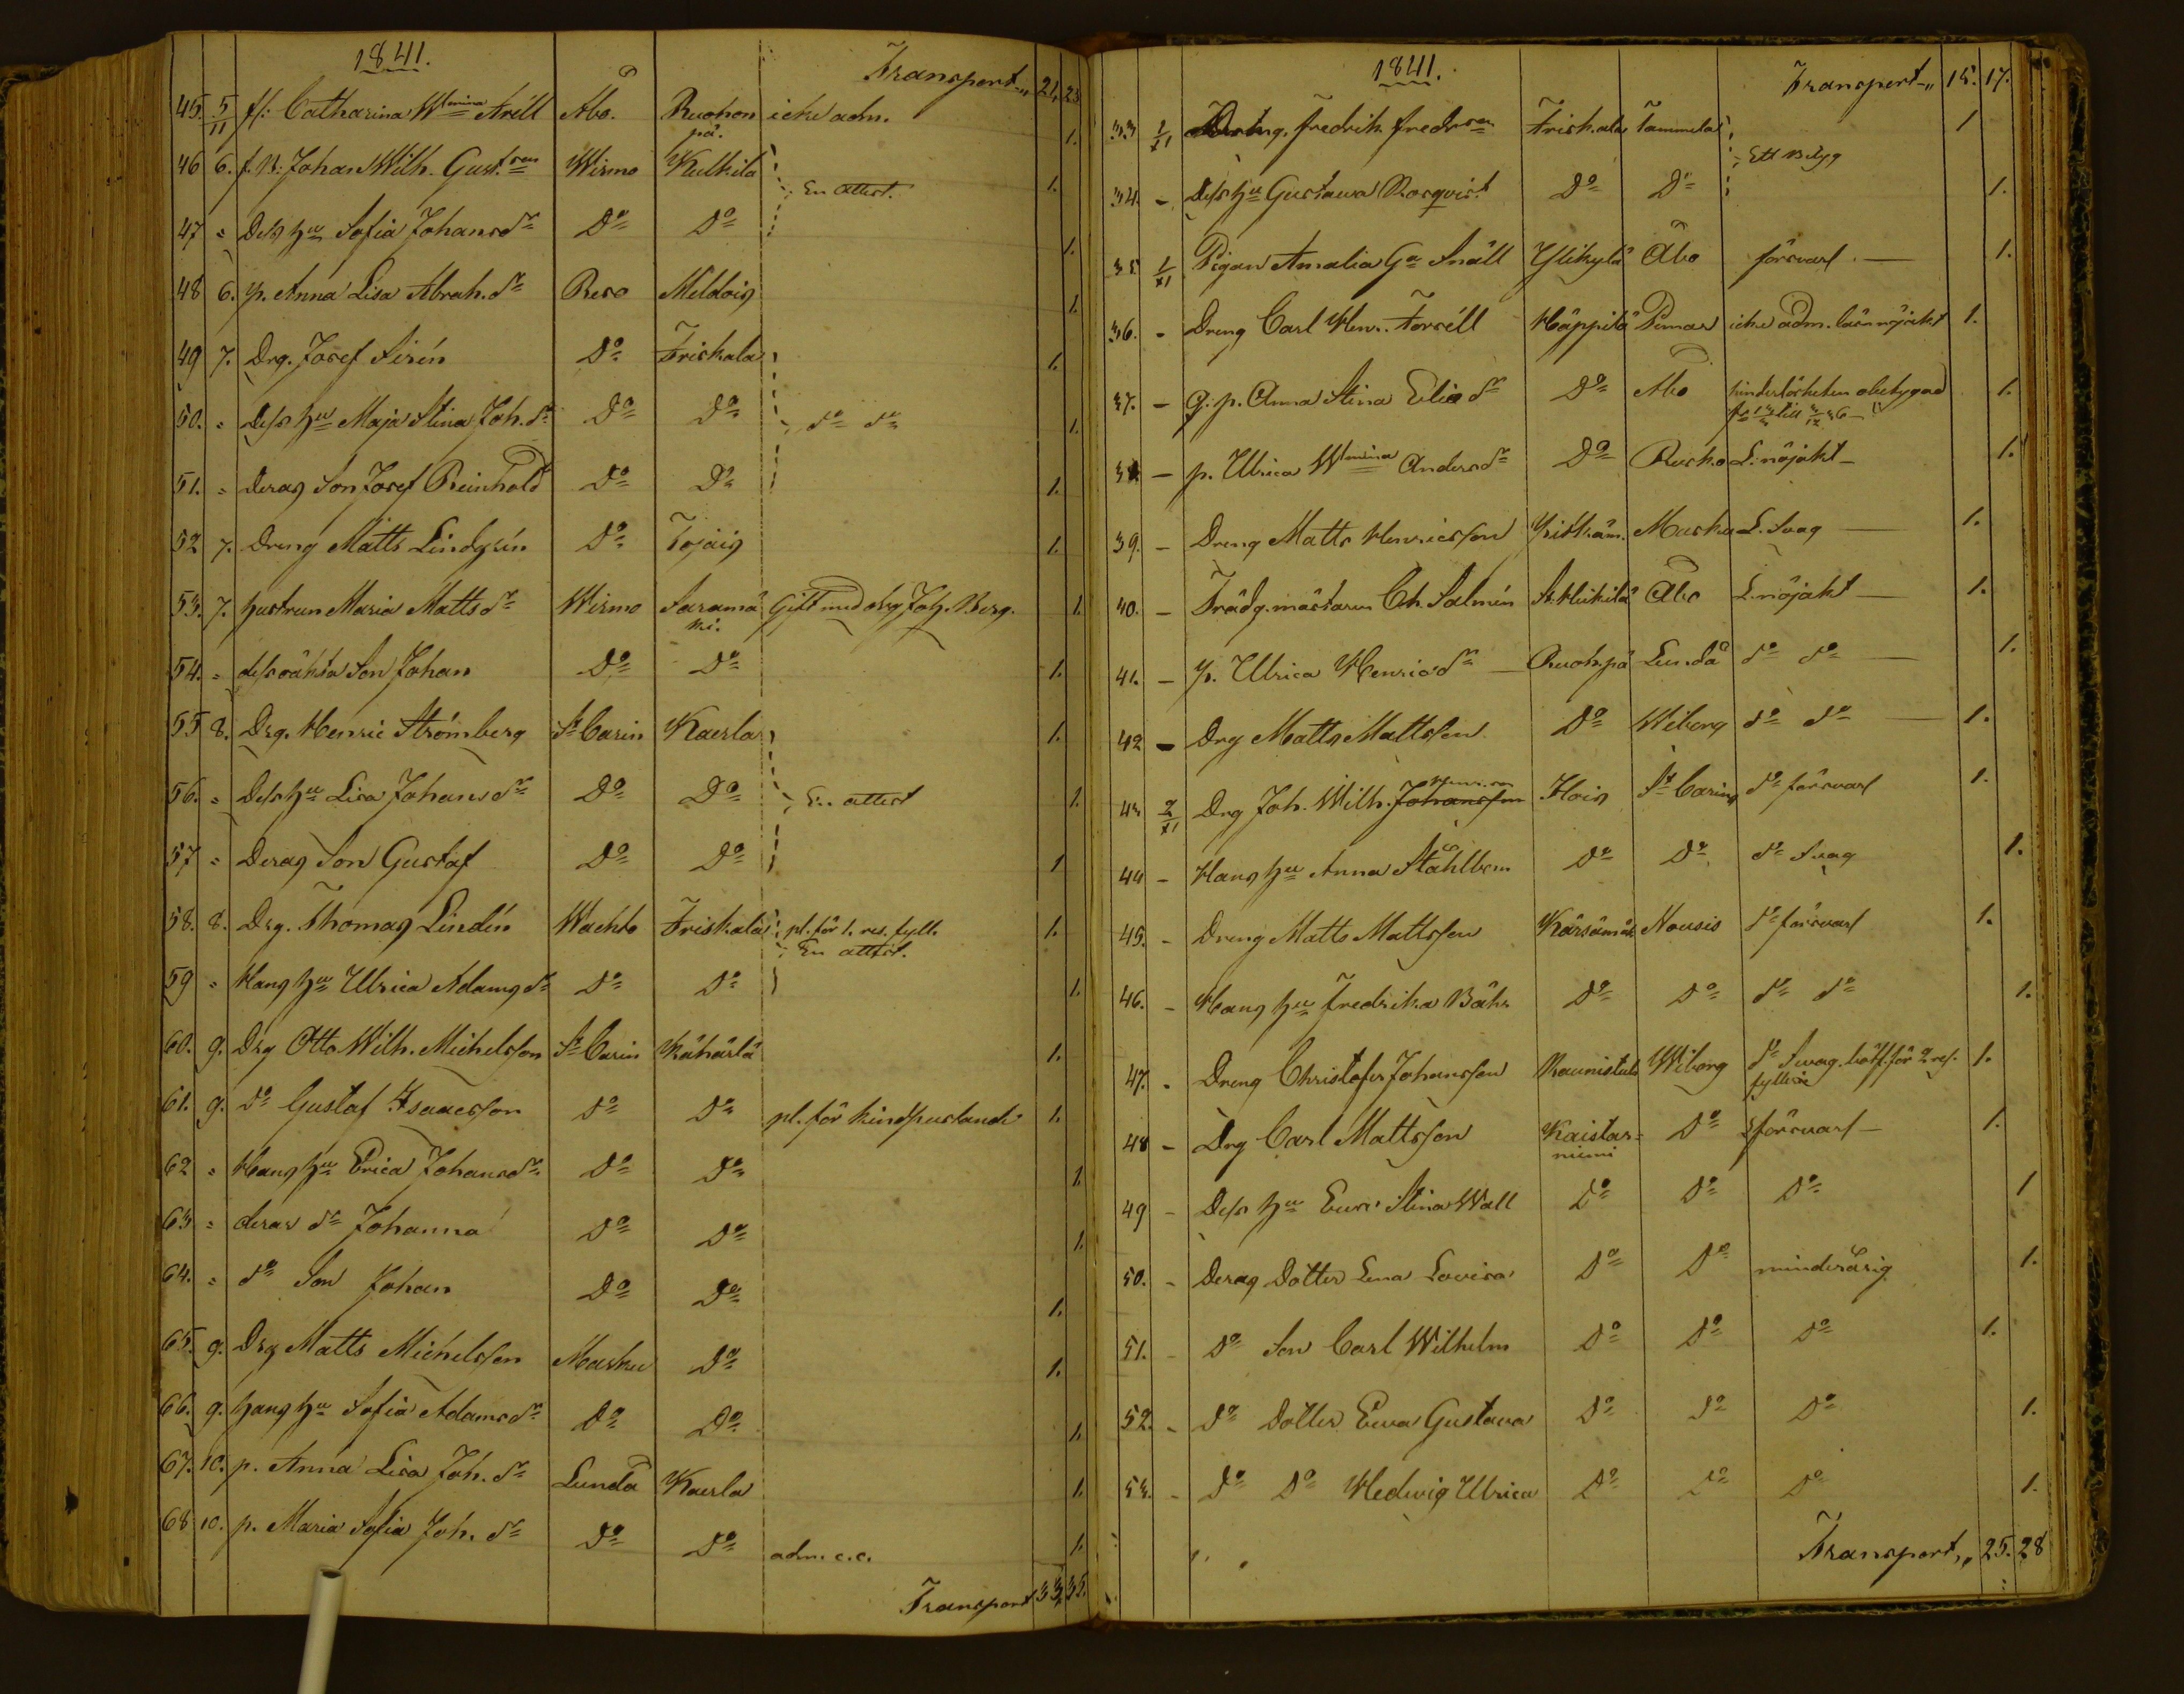 1841.
Transport „ 21. 23
45. 5/11 fl: Catharina W:mina Arell Åbo. Ruohon icke adm. 1.
på.
46 6. f. B: Johan Wilh. Gust.son Wirmo Kulkila 1.
En attest.
47 = Dess hu Sofia Johansdr Do Do 1.
48 6. p. Anna Lisa Abrah.dr Reso Mildois 1.
49 7. Drg. Josef Sirén Do Friskala 1.
50. = Dess hu Maja Stina Joh.dr Do Do do do 1.
51. = Deras Son Josef Reinhold Do Do 1.
52 7. Dreng Matts Lindgrén Do Tojais 1.
53. 7. hustrun Maria Mattsdr Wirmo Saramä Gift med drg Joh. Berg. 1.
ki.
54. = dess oäkta Son Johan Do Do 1.
55 8. Drg. Henric Strömberg St Carin Kaerla 1.
56. = Dess hu Lisa Johansdr Do Do En attest 1.
57 = Deras Son Gustaf Do Do 1
58. 8. Drg. Thomas Lindén Wachto Friskala pl. för 1. res. fyll. 1.
En attest.
59 = Hans hu Ulrica Adamsdr Do Do 1.
60. 9. Drg Otto Wilh. Michelsson St Carin Kähärlä 1.
61. 9. Do Gustaf Isaacsson Do Do pl. för 1.
62 = Hans hu Erica Johansdr Do Do 1.
63 = deras dr Johanna Do Do 1.
64. = do Son Johan Do Do 1.
65. 9. Drg Matts Michelsson Masku Do 1.
66. 9. hans hu Sofia Adamsdr Do Do 1.
67. 10. p. Anna Lisa Joh.dr Lundå Kaerla 1.
68 10. p. Maria Sofia Joh.dr Do Do adm. c.c. 1.
Transport 33, 35.
1841.
Transport „ 15. 17.
33 1/XI Dreng. Fredrik Fredrson Friskala Tammela 1
Ett Betyg
34. - Dess hu Gustawa Rosqvist Do Do 1.
35 1/XI Pigan Amalia Ga Snäll Ylikylä Åbo försvarl. — 1.
36. - Dreng Carl Henr. Forséll Häppilä Pemar icke adm. läsn nöjakt 1.
37. - G. p. Anna Stina Eliædr Do Åbo hinderlösheten obetygad 1.
till
38 - p. Ulrica W:mina Andersdr Do Rusko L. nöjakt — 1.
39. - Dreng Matts Henricsson Masku L. Svag — 1.
40. - Trädg.mästaren Ch. Salmén St. Heikilä Åbo L. nöjakt — 1.
41. - p. Ulrica Henricsdr — Ruohpå Lundå do do — 1.
42 - Drg Matts Mattsson Do Wiborg do do — 1.
Henr.son
43 2/XI Drg Joh. Wilh. Johansson Hois St Carins do försvarl 1.
44 - Hans hu Anna Ståhlbom Do Do do Svag 1.
45. - Dreng Matts Mattsson Kärsämäk Nousis do försvarl 1.
46. - Hans hu Fredrika Bähr Do Do do do 1.
47. - Dreng Christofer Johansson Raunistula Wiborg do Swag. bött. för 2 res. 1.
fylleri
48 - Drg Carl Mattsson Kaistar= Do försvarl — 1.
niemi
49 - Dess hu Ewa Stina Wall Do Do Do 1
50. - Deras Dotter Lena Lovisa Do Do minderårig 1.
51. - Do Son Carl Wilhelm Do Do Do 1.
52. - Do Dotter Ewa Gustava Do Do Do 1.
53. - Do Do Hedwig Ulrica Do Do Do 1.
Transport „ 25. 28